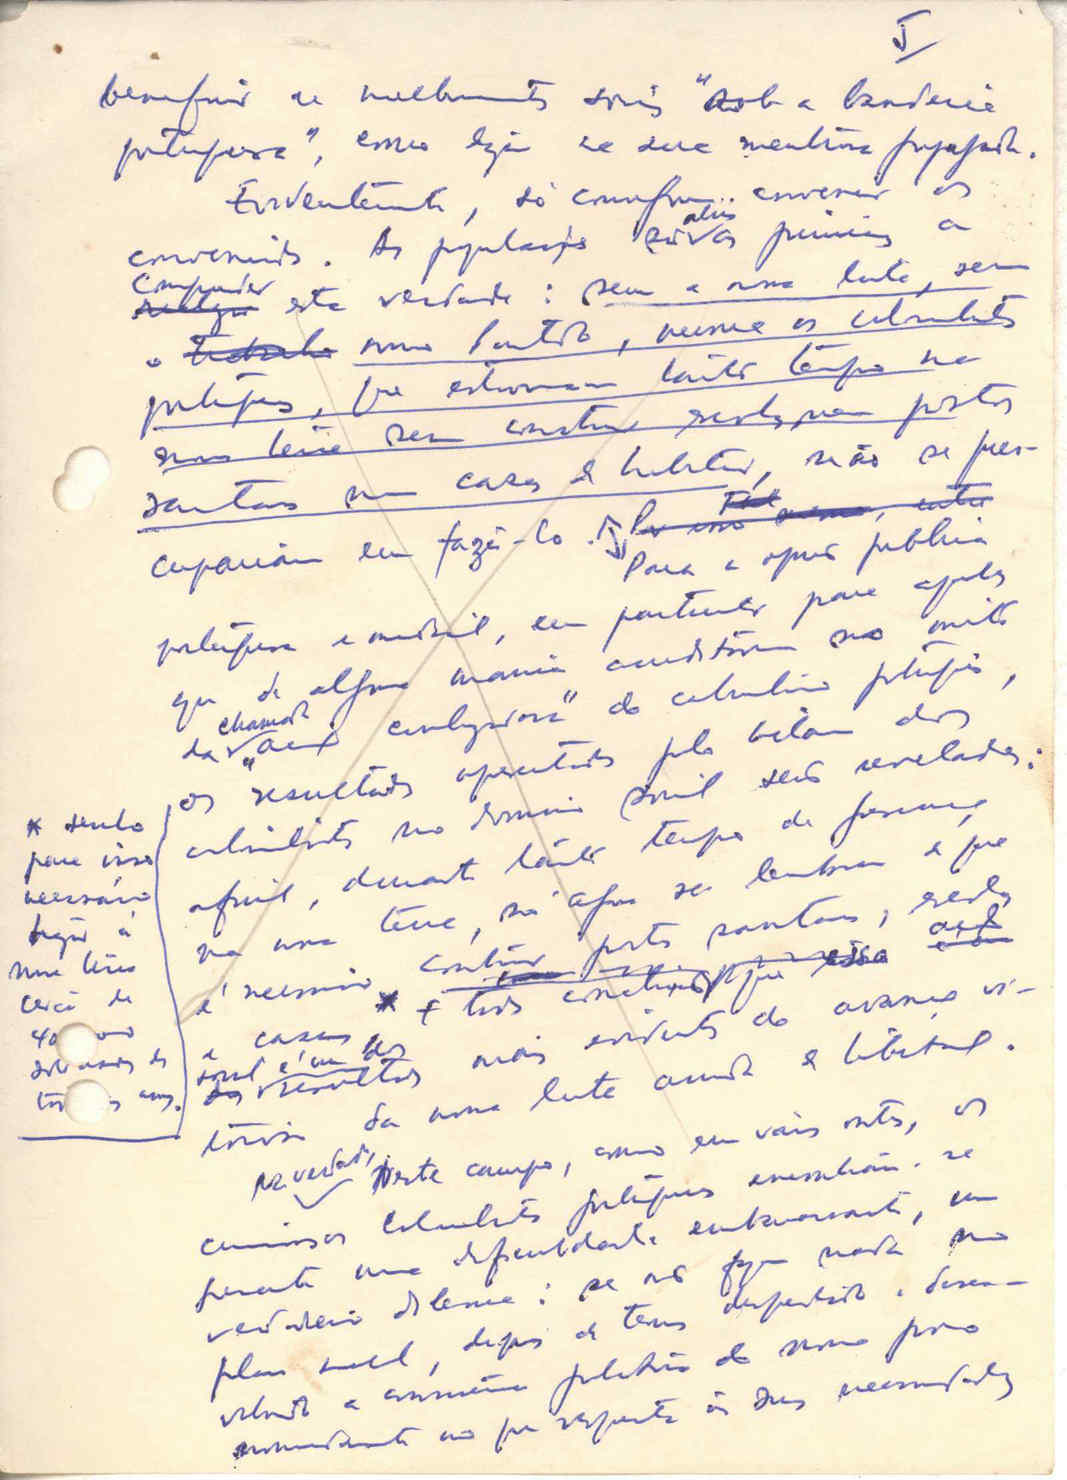 5
beneficiar de melhoramentos sociais "sob a bandeira
portuguesa", como dizia na sua mentirosa propaganda.
Evidentemente, só conseguiu convencer os
convencidos. As populações principiam a
compreender esta verdade: sem a nossa luta, sem
o nosso Partido, nunca os colonialistas
portugueses, que estiveram tanto tempo na
nossa terra sem construir escolas, nem postos
sanitários nem casas de habitação, não se preo-
cupariam em fazê-lo.
Para a opinião pública
portuguesa e mundial, em particular para aqueles
que de alguma maneira acreditavam no mito
da chamada "acção civilizadora" do colonialismo português,
os resultados apresentados pelo balanço dos
colonialistas no domínio social são reveladores:
afinal, durante tanto tempo de presença
na nossa terra, só agora se lembram de que
é necessário construir postos sanitários, escolas
e casas * E todos concluirão que essa acção
social é um dos resultados mais evidentes do avanço vi-
torioso da nossa luta armada de libertação.
Na verdade, neste campo, como em vários outros, os
criminosos colonialistas portugueses encontram-se
perante uma dificuldade embaraçante, um
verdadeiro dilema: se não fazem nada no
plano social, depois de termos despertado e desen-
volvido a consciência política do nosso povo
nomeadamente no que respeita às suas necessidades
* sendo
para isso
necessário
trazer à
nossa terra
cerca de
soldados
anos.